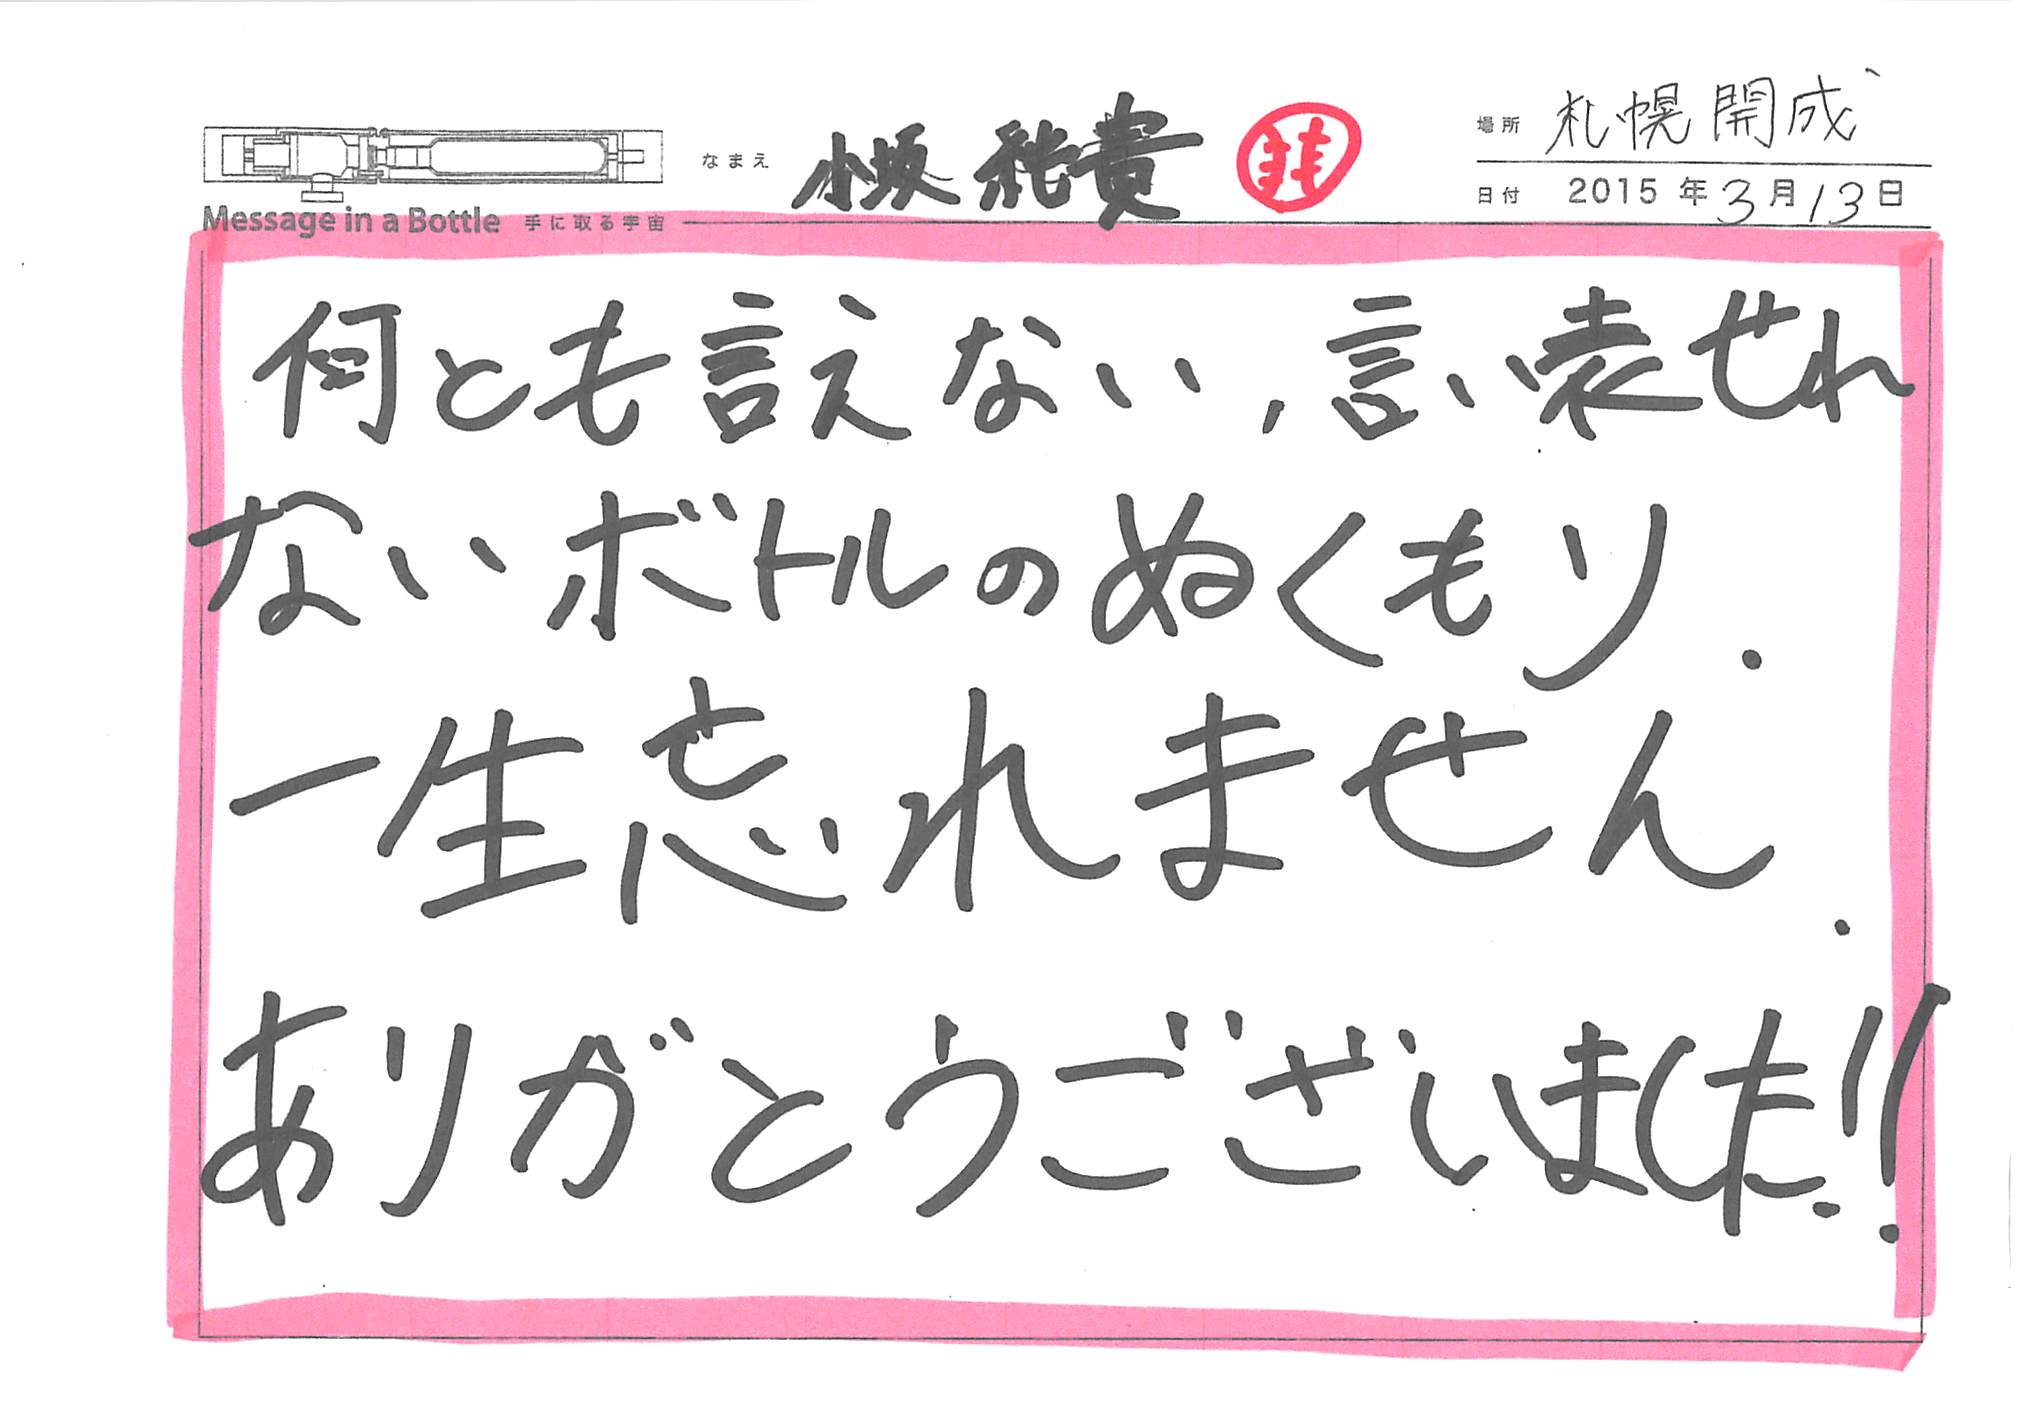 なまえ 小坂 純貴
場所 札幌開成
日付 2015年3月13日
Message in a Bottle 手に取る宇宙
何とも言えない,言い表せれ
ないボトルのぬくもり.
一生忘れません.
ありがとうございました!!